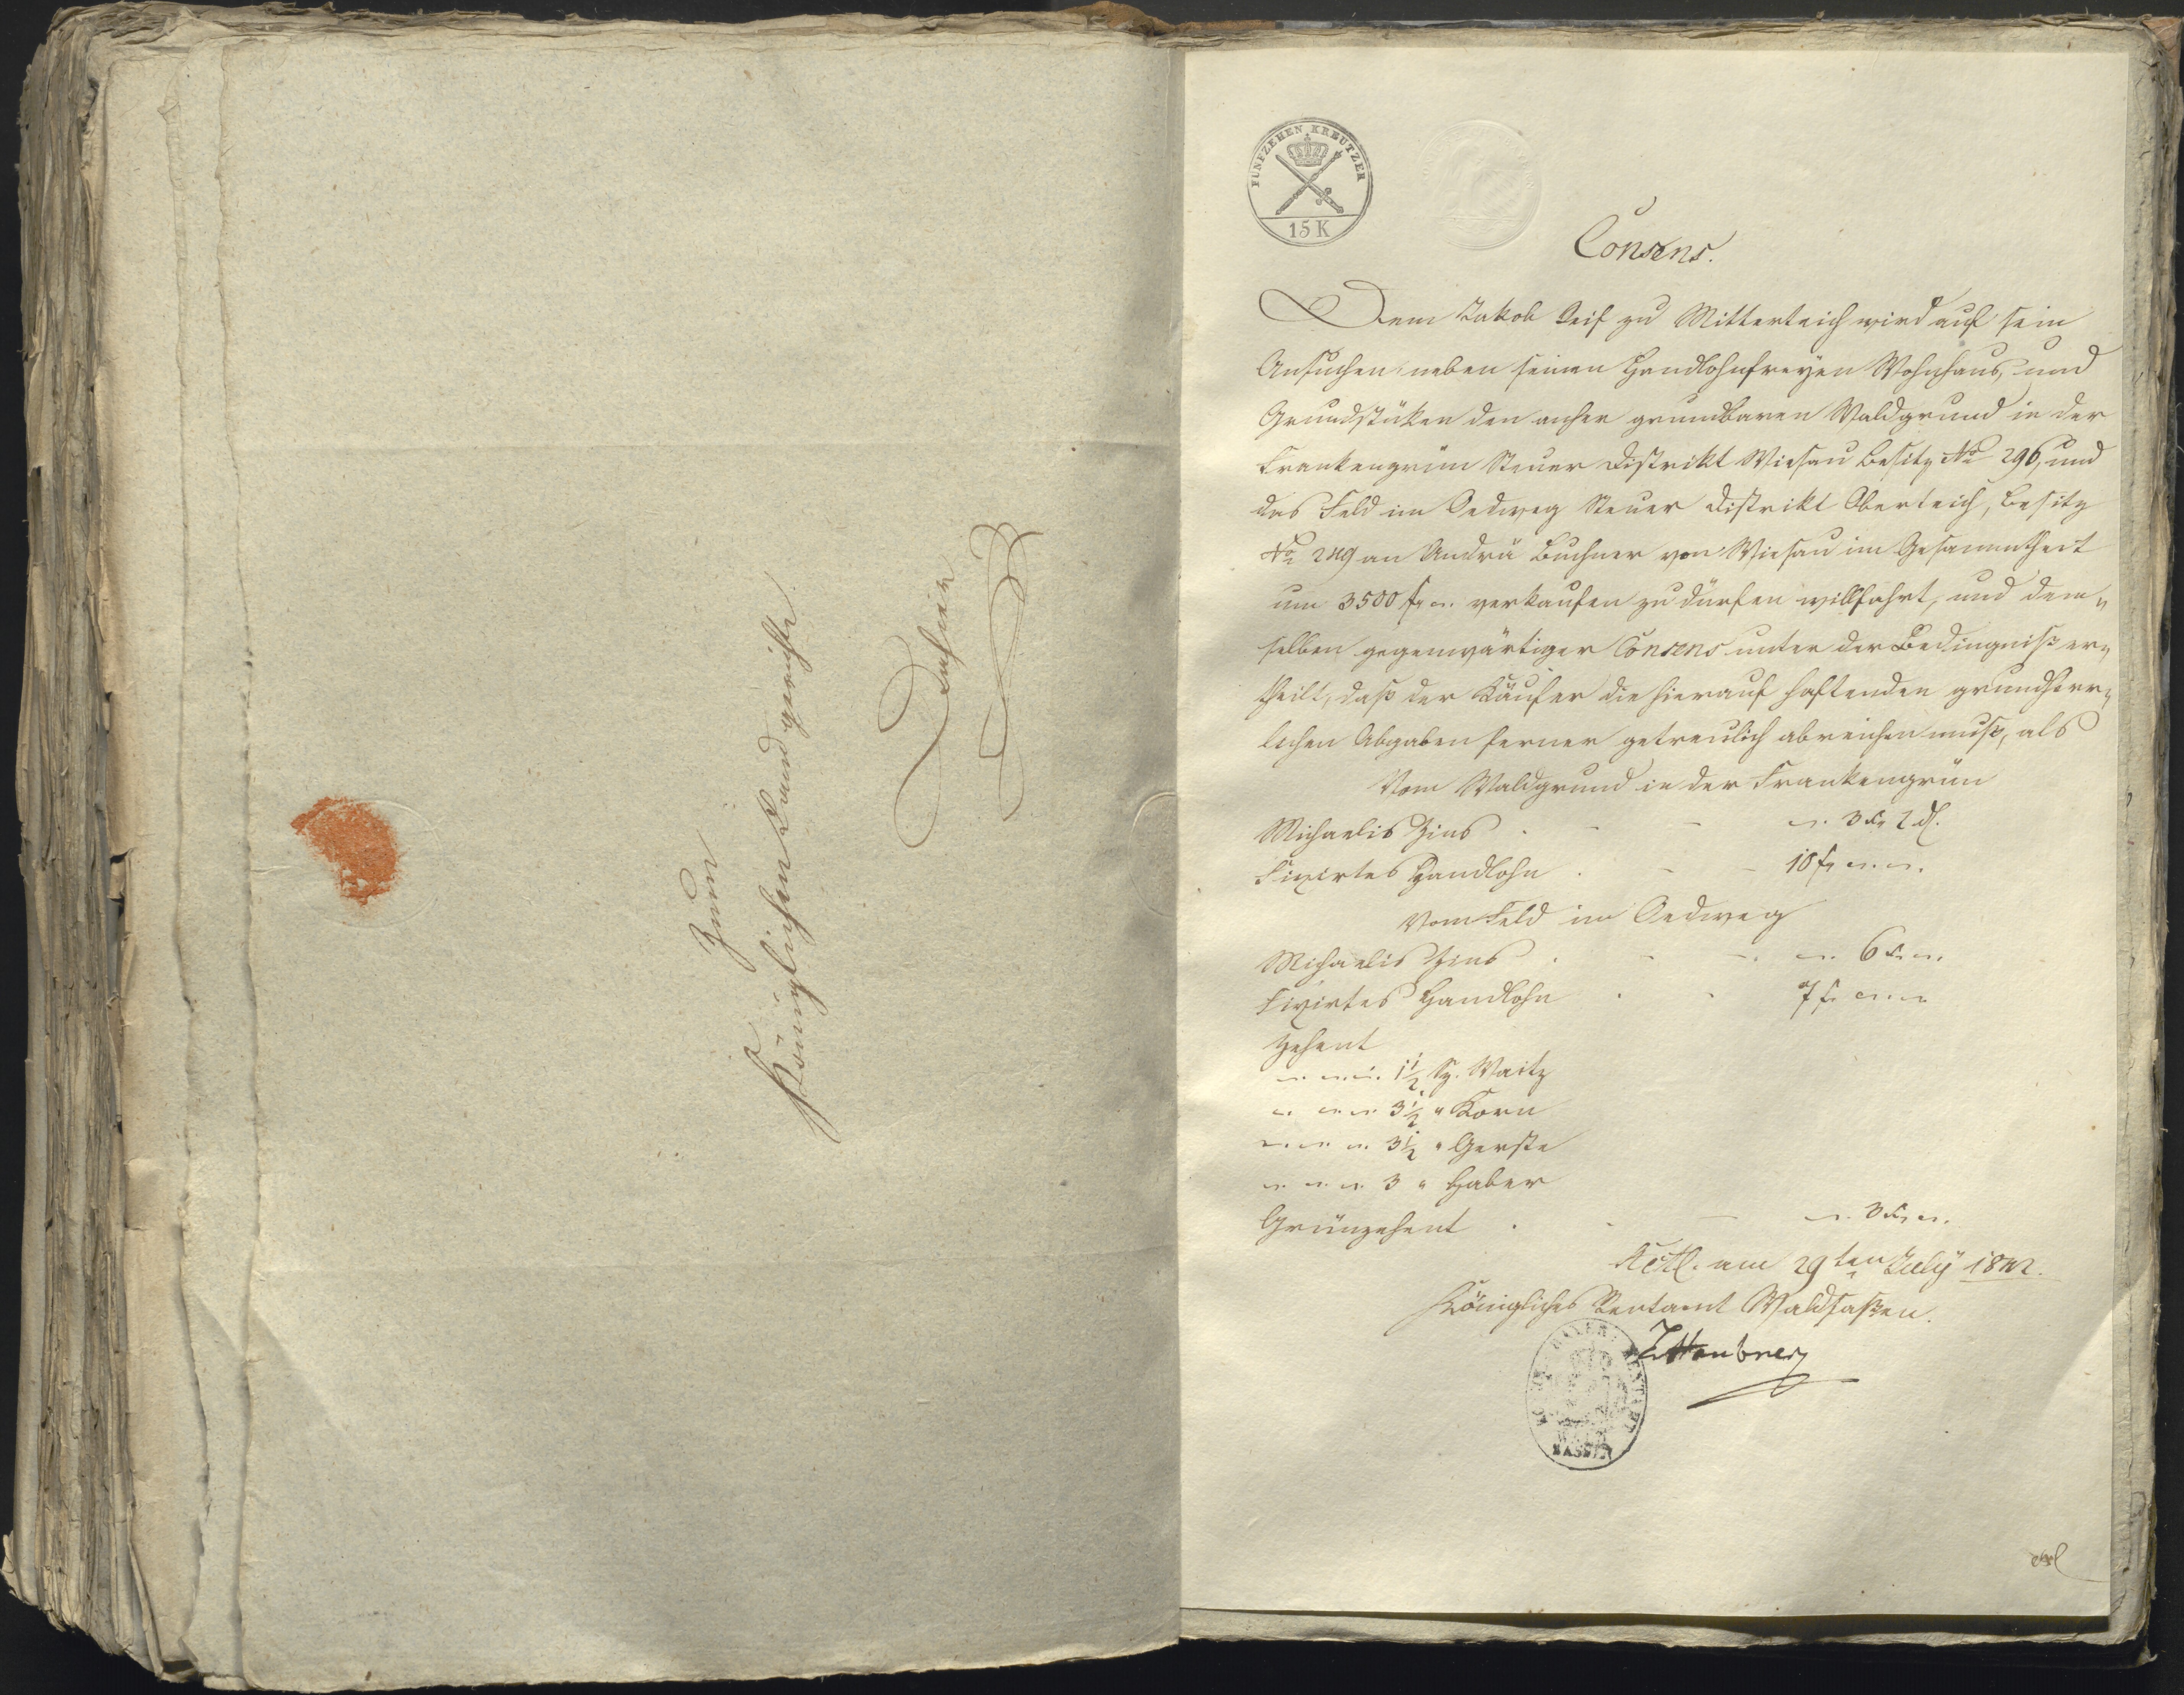 Zum
Königlichen Landgerichte
Dahier
FÜNFZEHEN KREUTZER
15 K
Consens.
Dem Jakob Zeis zu Mitterteich wird auf sein
Ansuchen, neben seinen Handlohnfreyen Wohnhaus, und
Grundstüken den anher grundbaren Waldgrund in der
Frankengrün Steuer Distrikt Wiesau Besitz No 296, und
das Feld im Oedweg Steuer Distrikt Oberteich, Besitz
No 249 an Andrä Buchner von Wiesau im Gesammtheit
um 3500 f verkaufen zu dürfen willfahrt, und dem„
selben gegenwärtiger Consens unter der Bedingniß er„
theilt, daß der Käufer die hierauf haftenden grundherr„
lichen Abgaben ferner getreulich abreichen muß, als
Vom Waldgrund in der Frankengrün
Michaelis Zins . - - 3 kr 2 dl.
Fixirtes Handlohn . - - 10 f
Vom Feld im Oedweg
Michaelis Zins . - - 6 kr
Fixirtes Handlohn . . 7 f
Zehent
1½ Sz. Waitz
3½ " Korn
3½ " Gerste
3 " Haber
Grünzehent . - - 3 kr
Actl. am 29ten July 1842.
Königliches Rentamt Waldsaßen.
BAYER. RENTAMT
WALD
SASSEN